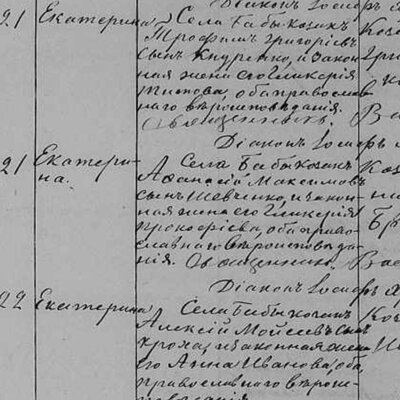 Діаконъ Іосифъ
21 Екатерина Села Бабы козакъ
Трофимъ Григоріевъ
сынъ Кнуренко, и закон
ная жена его Гликерія
Титова, оба православ
наго вѣроисповѣданія.
Священникъ
Діаконъ Іосифъ
21 Екатери- Села Бабы козакъ
на. Афанасій Максимовъ
сынъ Шевченко, и закон
ная жена его Гликерія
Прокофіева, оба право
славнаго вѣроисповѣда
нія. Священникъ
Діаконъ Іосифъ
22 Екатерина Села Бабы козакъ
Алексій Мойсеевъ сынъ
и законная жена
его Анна Иванова, оба
православнаго вѣроис-
повѣданія